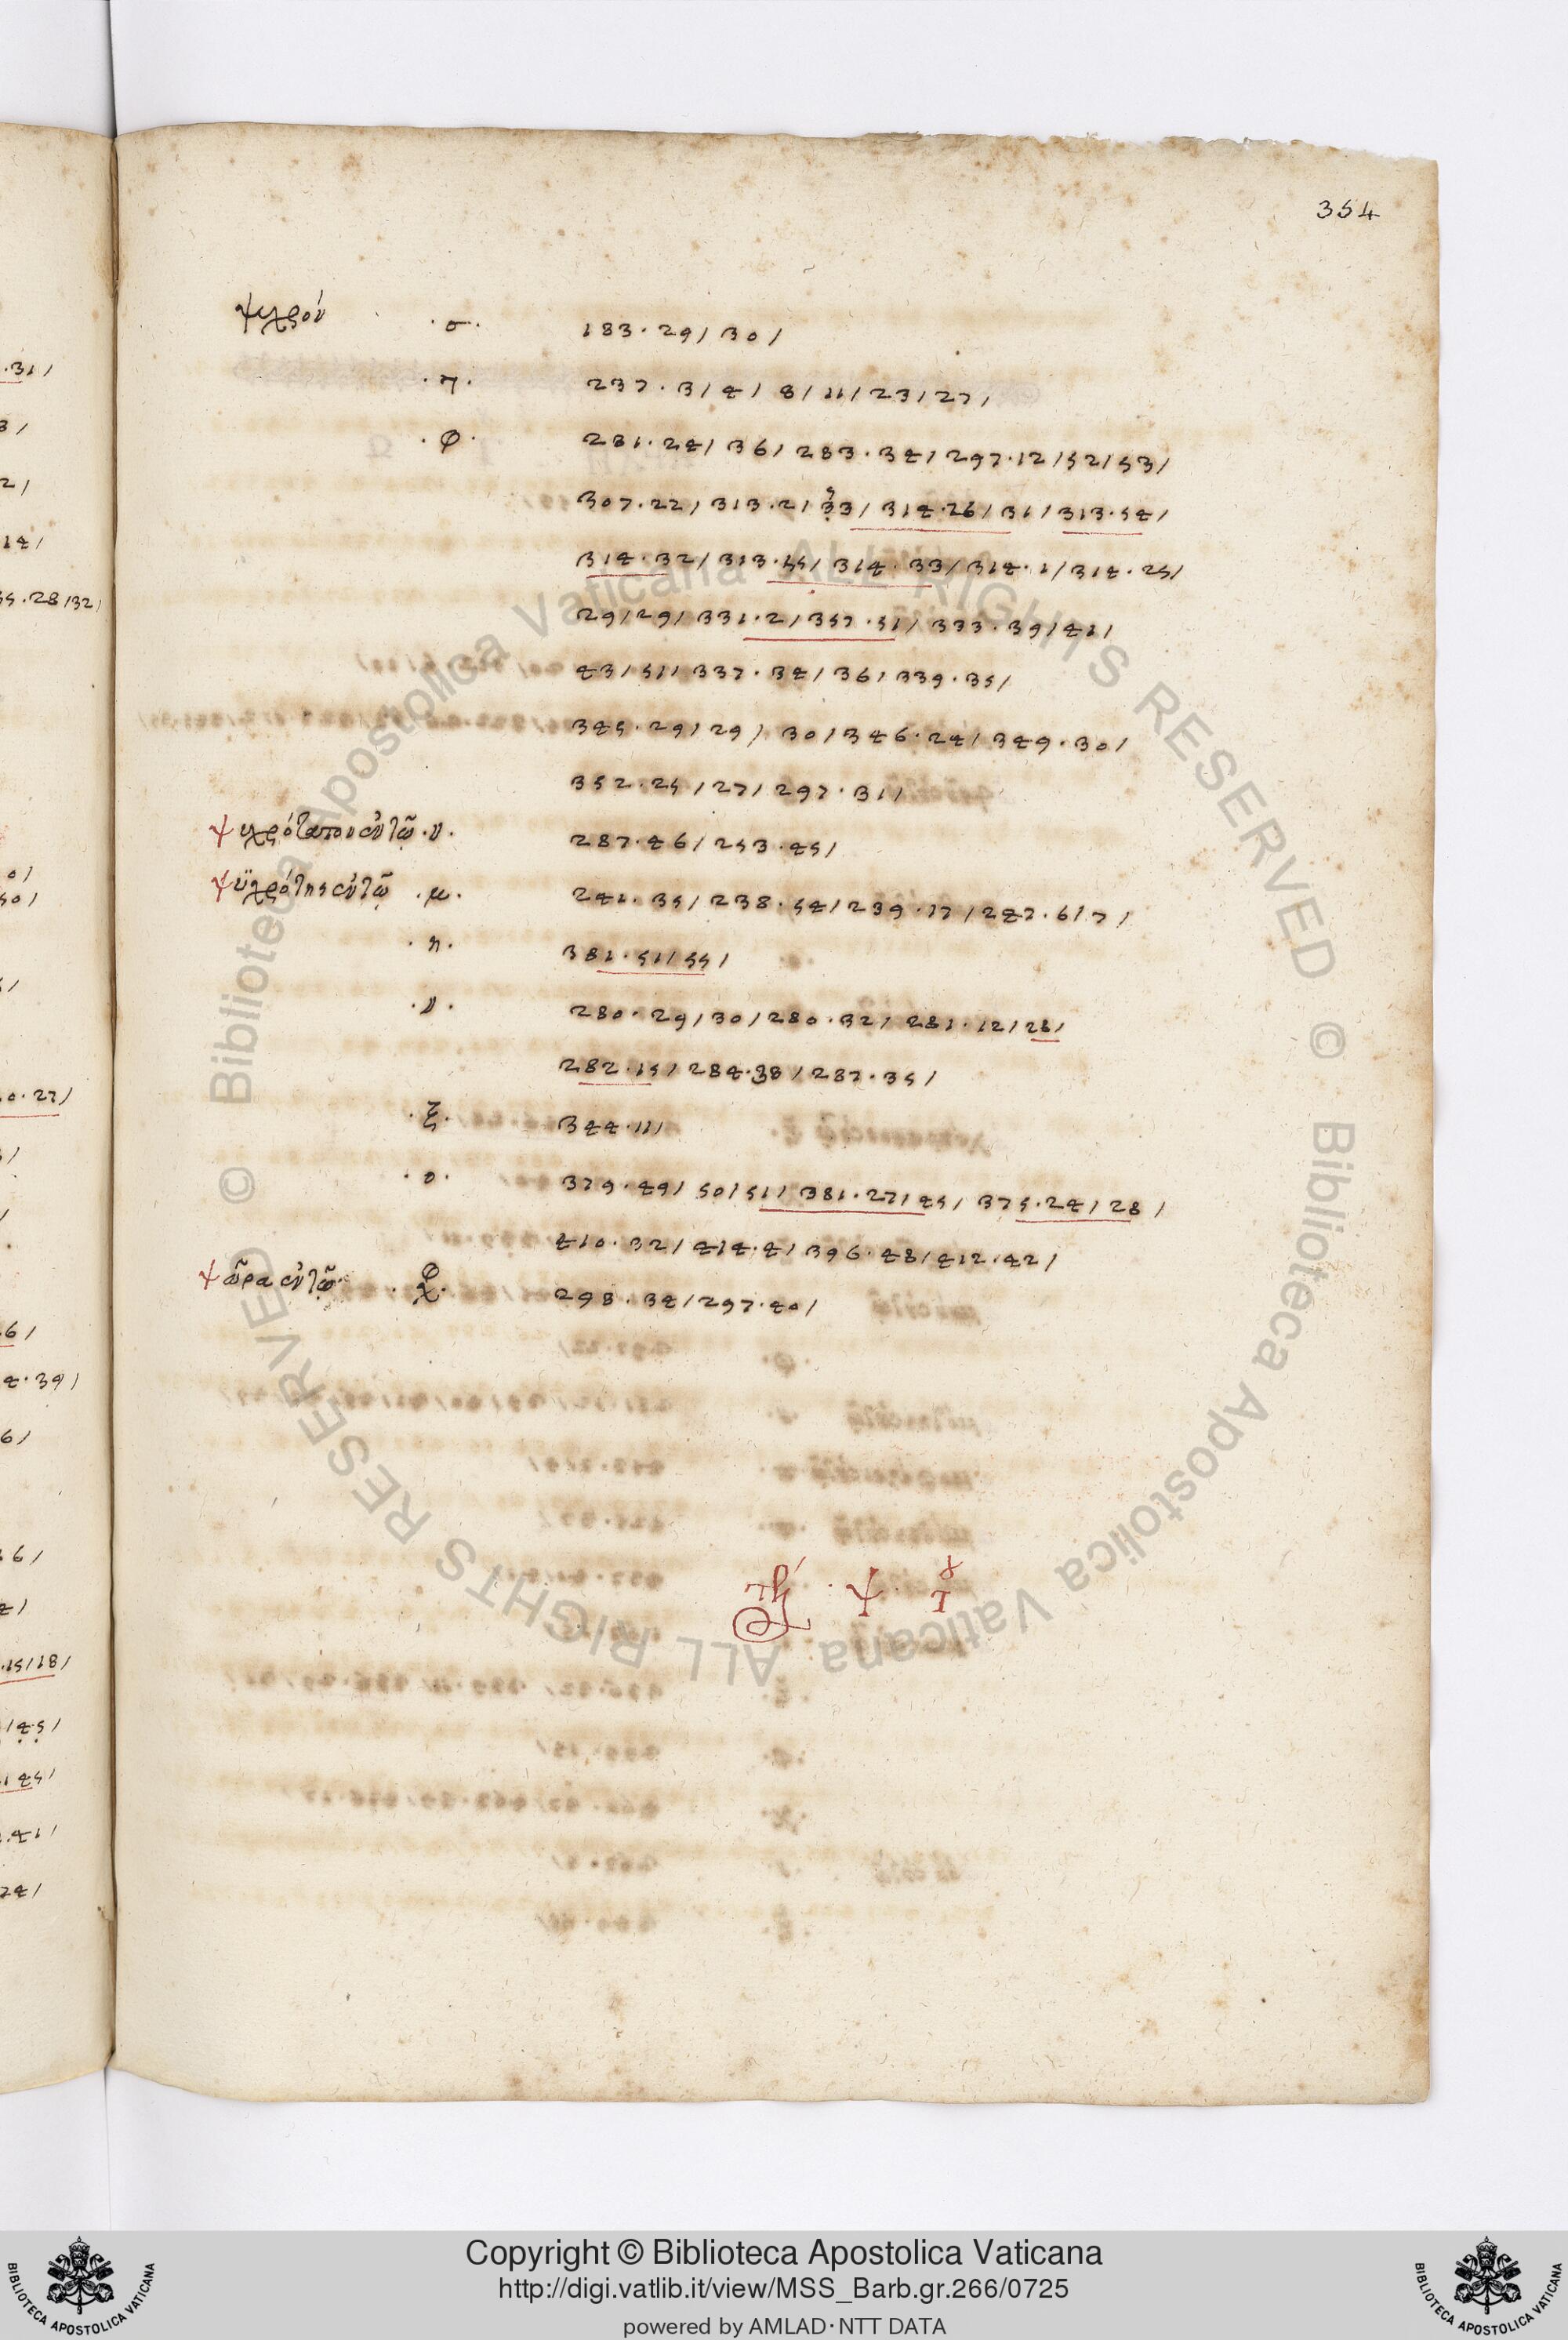 354
ψυχρόν ·σ· 183·29/30/
·τ· 237·3/4/8/11/23/27/
·φ· 281·24/36/283·34/297·12/52/53/
307·22/313·2/33/314·26/31/313·54/
314·32/313·55/314·33/314·1/314·25/
29/29/331·2/357·51/333·39/41/
43/51/337·34/36/339·35/
345·29/29/30/346·24/349·30/
352·25/27/297·31/
ψυχρόταπον ἐν τῷ ·ν· 287·46/253·45/
ψυχρότης ἐν τῷ ·μ· 241·35/238·54/239·17/247·6/7/
·π· 381·51/55/
·ν· 280·29/30/280·32/281·12/28/
282·15/284·38/287·35/
·ξ· 344·11/
·ο· 379·49/50/51/381·27/45/375·24/28/
410·32/414·4/396·48/412·42/
ψώρα ἐν τῷ φ ·χ· 298·34/297·40/
Ψ
Copyright © Biblioteca Apostolica Vaticana
http://digi.vatlib.it/view/MSS_Barb.gr.266/0725
powered by AMLAD·NTT DATA